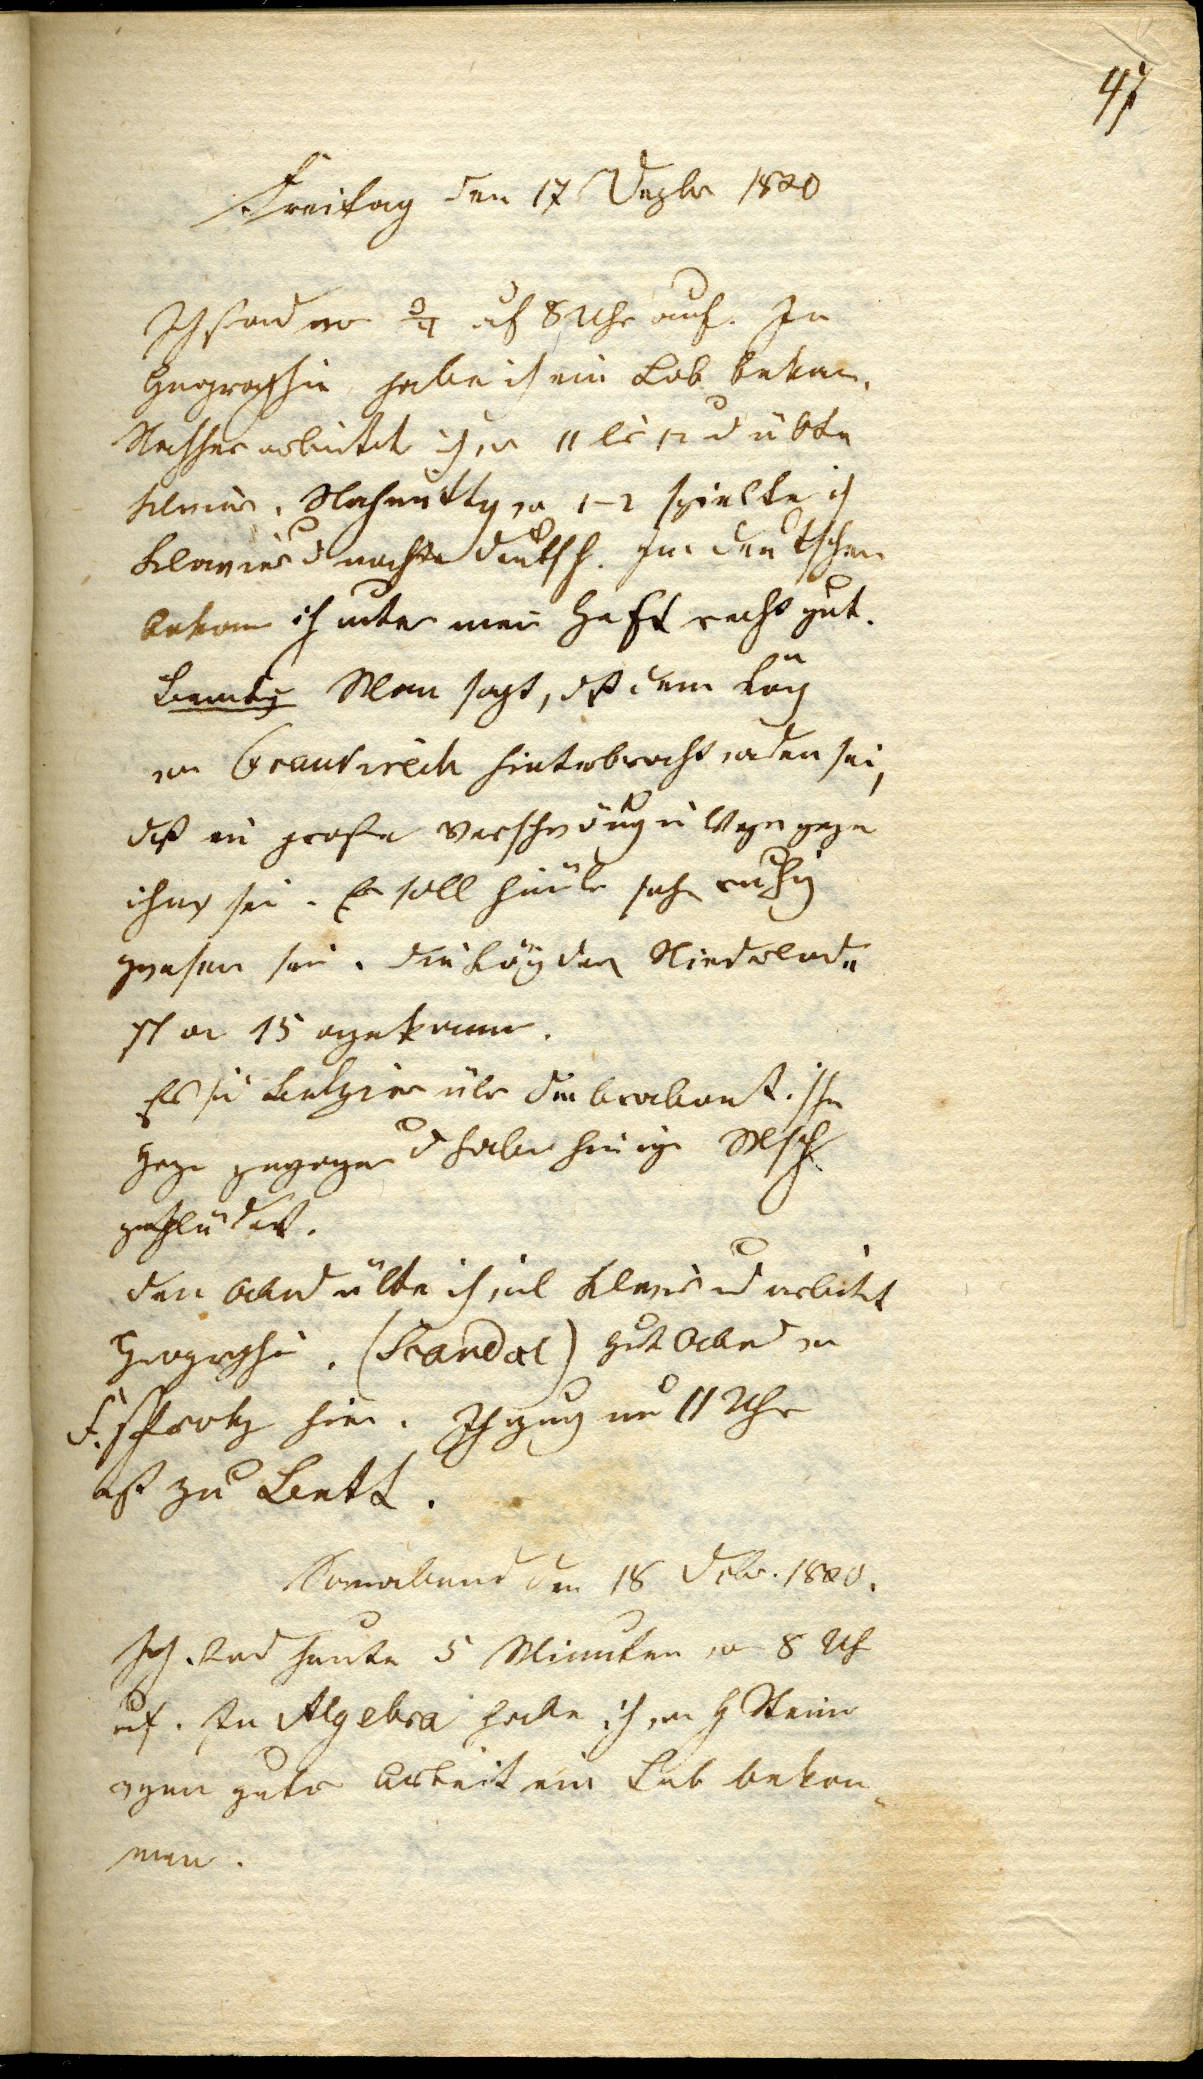 47
Freitag den 17 Dezbr 1820
Ich stand vor 3/4 auf 8 Uhr auf. In
Geographie habe ich ein Lob bekom.
Nachher arbeitete ich von 11 bis 12 und übte
Klavier. Nachmittag von 1-2 spielte ich
Klavier und machte deutsch. Im deutschen
bekam ich unter mein Heft recht gut.
Man sagt, daß dem Köng
von Frankreich hinterbracht worden sei,
daß ein große Verschwörung in gegen
ihn sei. Er soll sehr ruhig
gewesen sein. Die Köng der Niederlande
ist am 15 angekommen.
Es sie Belgier über die brabant.
gezogen und haben einige Msch
geplündert.
den Abend übte ich viel Klavier und arbeitet
Geographie. (Scandal) gut Abend
hier. Ich ging um 11 Uhr
erst zu Bett.
Sonnabend den 18 Dcbr. 1820.
Ich stand heute 5 Minuten vor 8 Uhr
auf. In Algebra habe ich von H Stein
wegen guter Arbeit ein Lob bekom-
men.